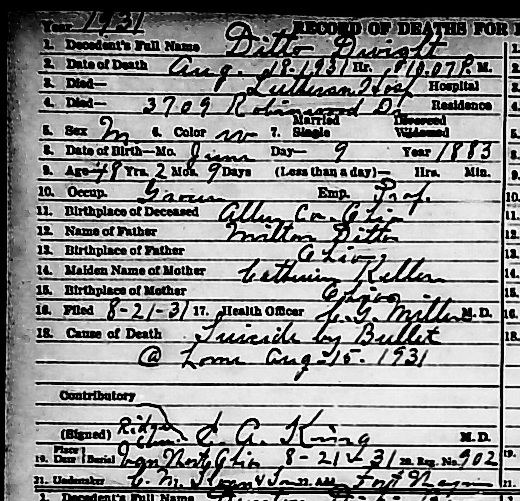 Year 1931 RECORD OF DEATHS FOR
1. Decedent's Full Name Ditto Dwight
2. Date of Death Aug. 18-1931 Hr. 10.07 P. M.
3. Died— Lutheran Hosp Hospital
4. Died— 3709 Robinwood Dr Residence
5. Sex M 6. Color w 7. Married Single Divorced Widowed
8. Date of Birth—Mo. June Day— 9 Year 1883
9. Age 48 Yrs. 2 Mos. 9 Days (Less than a day)— Hrs. Min.
10. Occup. Grocer Emp. Prof.
11. Birthplace of Deceased Allen Co. Ohio
12. Name of Father Milton Ditto
13. Birthplace of Father Ohio
14. Maiden Name of Mother Catherine Keller
15. Birthplace of Mother Ohio
16. Filed 8-21-31 17. Health Officer Miller M.D.
18. Cause of Death Suicide by Bullet
@ home Aug-15. 1931
Contributory
(Signed) A. King M.D.
19. Place Date Burial Van Wert Ohio 8-21-31 20. Reg. No. 902
21. Undertaker C. M. Sloan & Son 22. Add. Fort Wayne
1. Decedent's Full Name